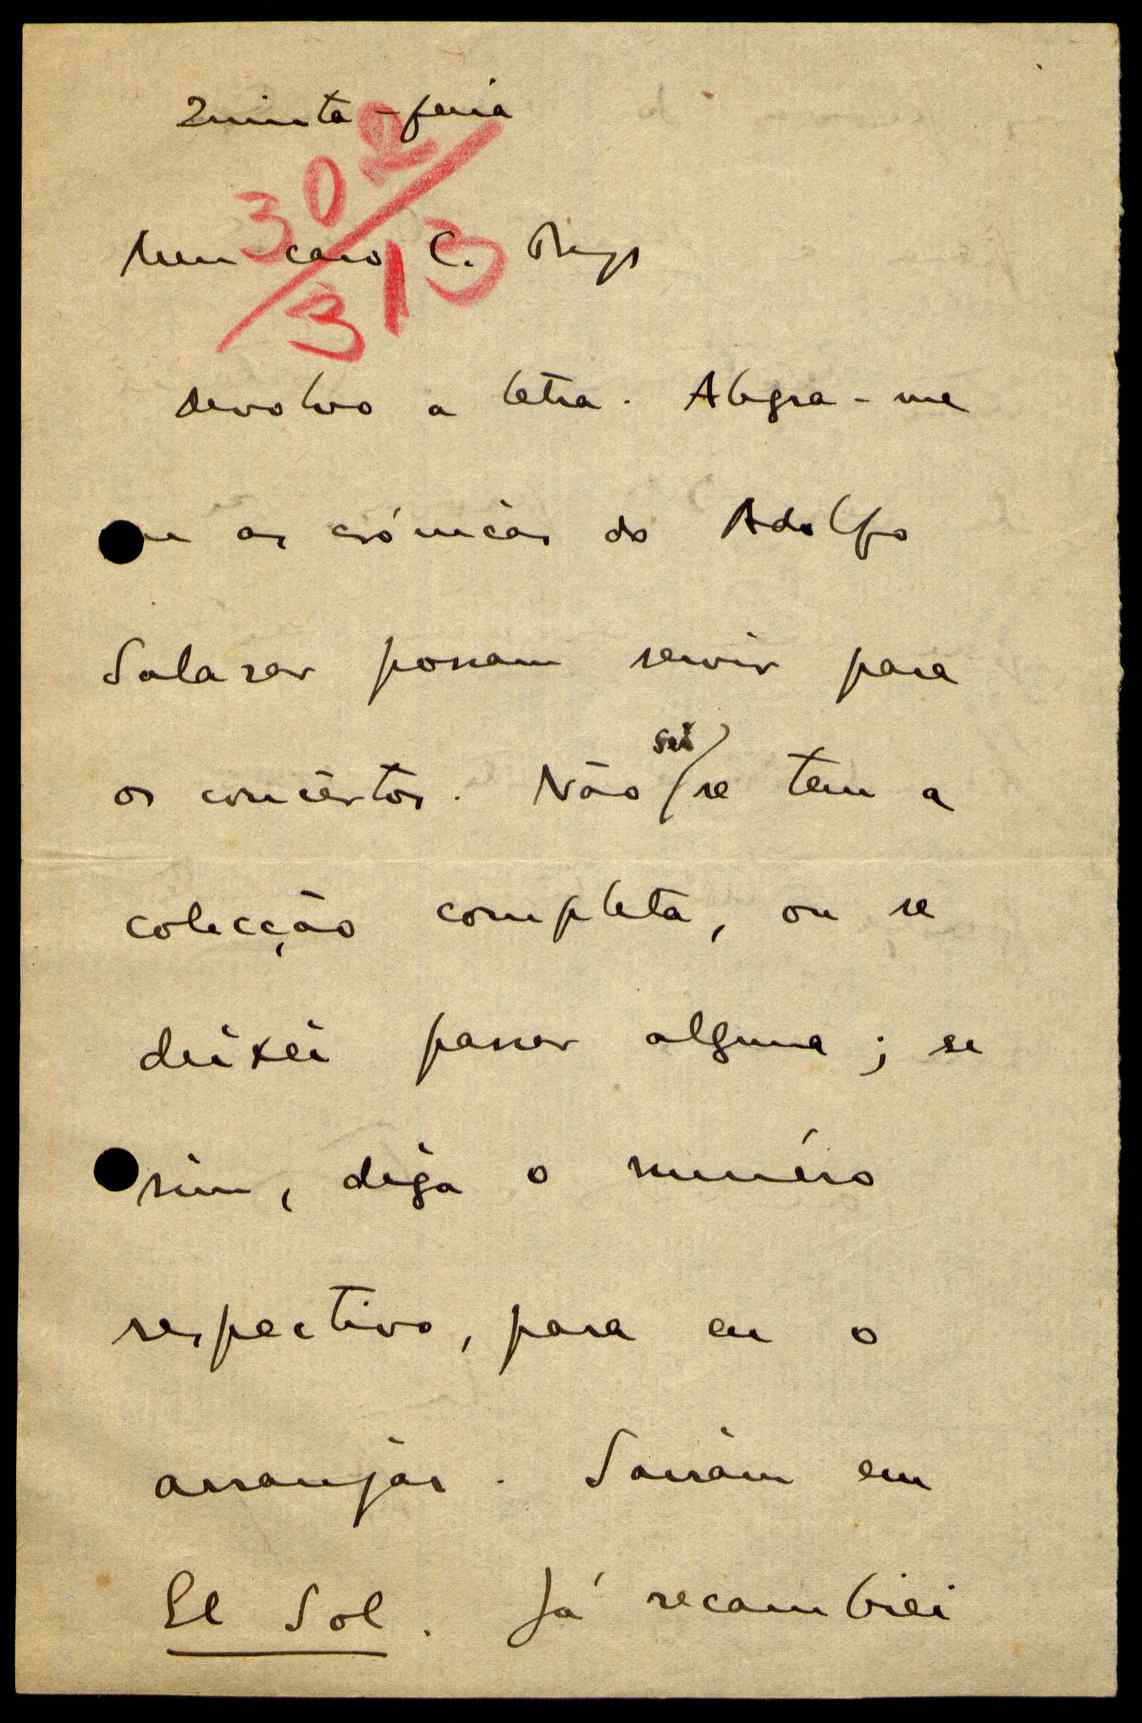 Quinta-feira
302/313
Meu caro C.
devolvo a letra. Alegra-me
que as crónicas do Adolfo
Salazar possam servir para
os concêrtos. Não sei se tem a
colecção completa, ou se
deixei passar alguma; se
sim, diga o número
respectivo, para eu o
arranjar. Sairam em
El Sol. Já recambiei